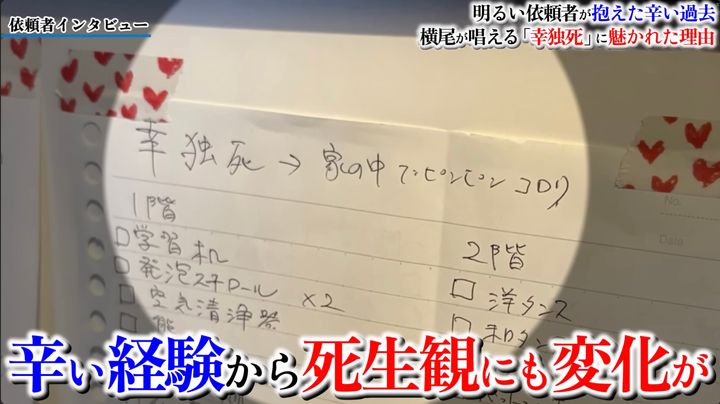 依頼者インタビュー
明るい依頼者が抱えた辛い過去
横尾が唱える「幸独死」に魅かれた理由
幸独死→家の中でピンピンコロリ
No.
Date
1階
□学習机
□発泡スチロール ×2
□空気清浄器
2階
□洋タンス
□和タン
辛い経験から死生観にも変化が